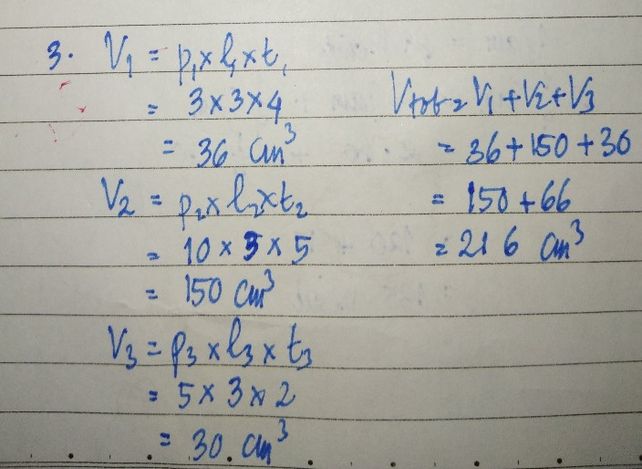 3. V₁ = p₁ × l₁ × t₁
= 3 × 3 × 4
= 36 cm³
V₂ = p₂ × l₂ × t₂
= 10 × 3 × 5
= 150 cm³
V₃ = p₃ × l₃ × t₃
= 5 × 3 × 2
= 30 cm³
Vtot = V₁ + V₂ + V₃
= 36 + 150 + 30
= 150 + 66
= 216 cm³